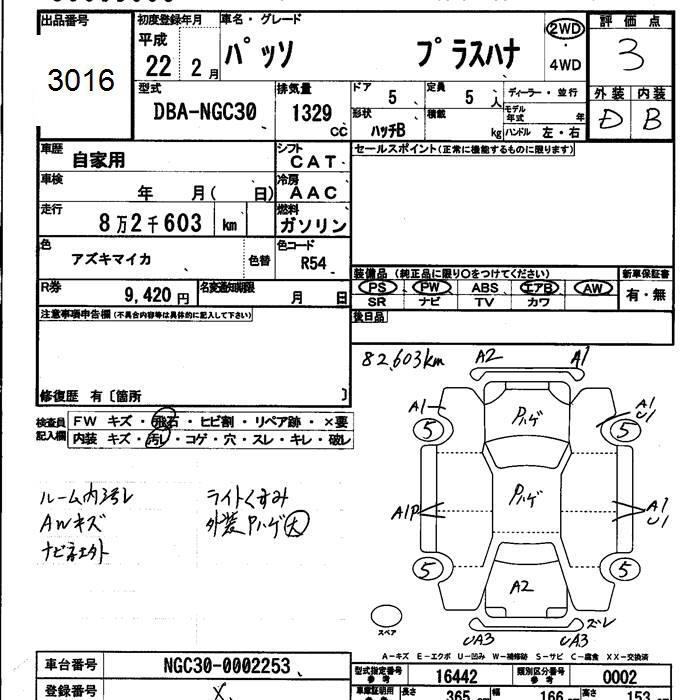 出品番号
3016
初度登録年月
平成
22 2 月
車名・グレード
パッソ プラスハナ
2WD
4WD
評価点
3
外装 内装
D B
型式
DBA-NGC30
排気量
1329
CC
ドア 5
定員 5 人
ディーラー・並行
形状
ハッチB
積載 kg
モデル年式 年
ハンドル 左・右
車歴
自家用
シフト
CAT
車検 年 月( 日)
冷房
AAC
走行
8万2千603 km
燃料
ガソリン
色
アズキマイカ
色替
色コード
R54
R券
9,420円
名変通知期限 月 日
セールスポイント(正常に機能するものに限ります)
装備品 (純正品に限り○をつけてください)
PS PW ABS エアB AW
SR ナビ TV カワ
新車保証書
有・無
後日品
注意事項申告欄(不具合内容等は具体的に記入して下さい)
修復歴 有〔箇所 〕
検査員記入欄
FW キズ・飛石・ヒビ割・リペア跡・×要
内装 キズ・汚レ・コゲ・穴・スレ・キレ・破レ
82,603km
A2 A1
A1
A1
U1
5 5
Pハゲ
Pハゲ
A1P
A1
U1
5 5
A2
ズレ
UA3 UA3
スペア
ルーム内汚レ
AWキズ
ライトくすみ
外装Pハゲ大
A-キズ E-エクボ U-凹み W-補修跡 S-サビ C-腐食 XX-交換済
車台番号
NGC30-0002253
登録番号
X
型式指定番号
参考
16442
類別区分番号
参考
0002
長さ 365
幅 166
高さ 153